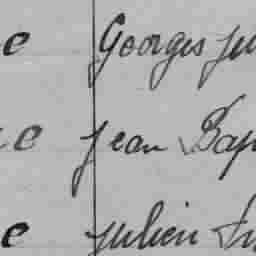 e Georges Ju
e Jean Bap
e Julien